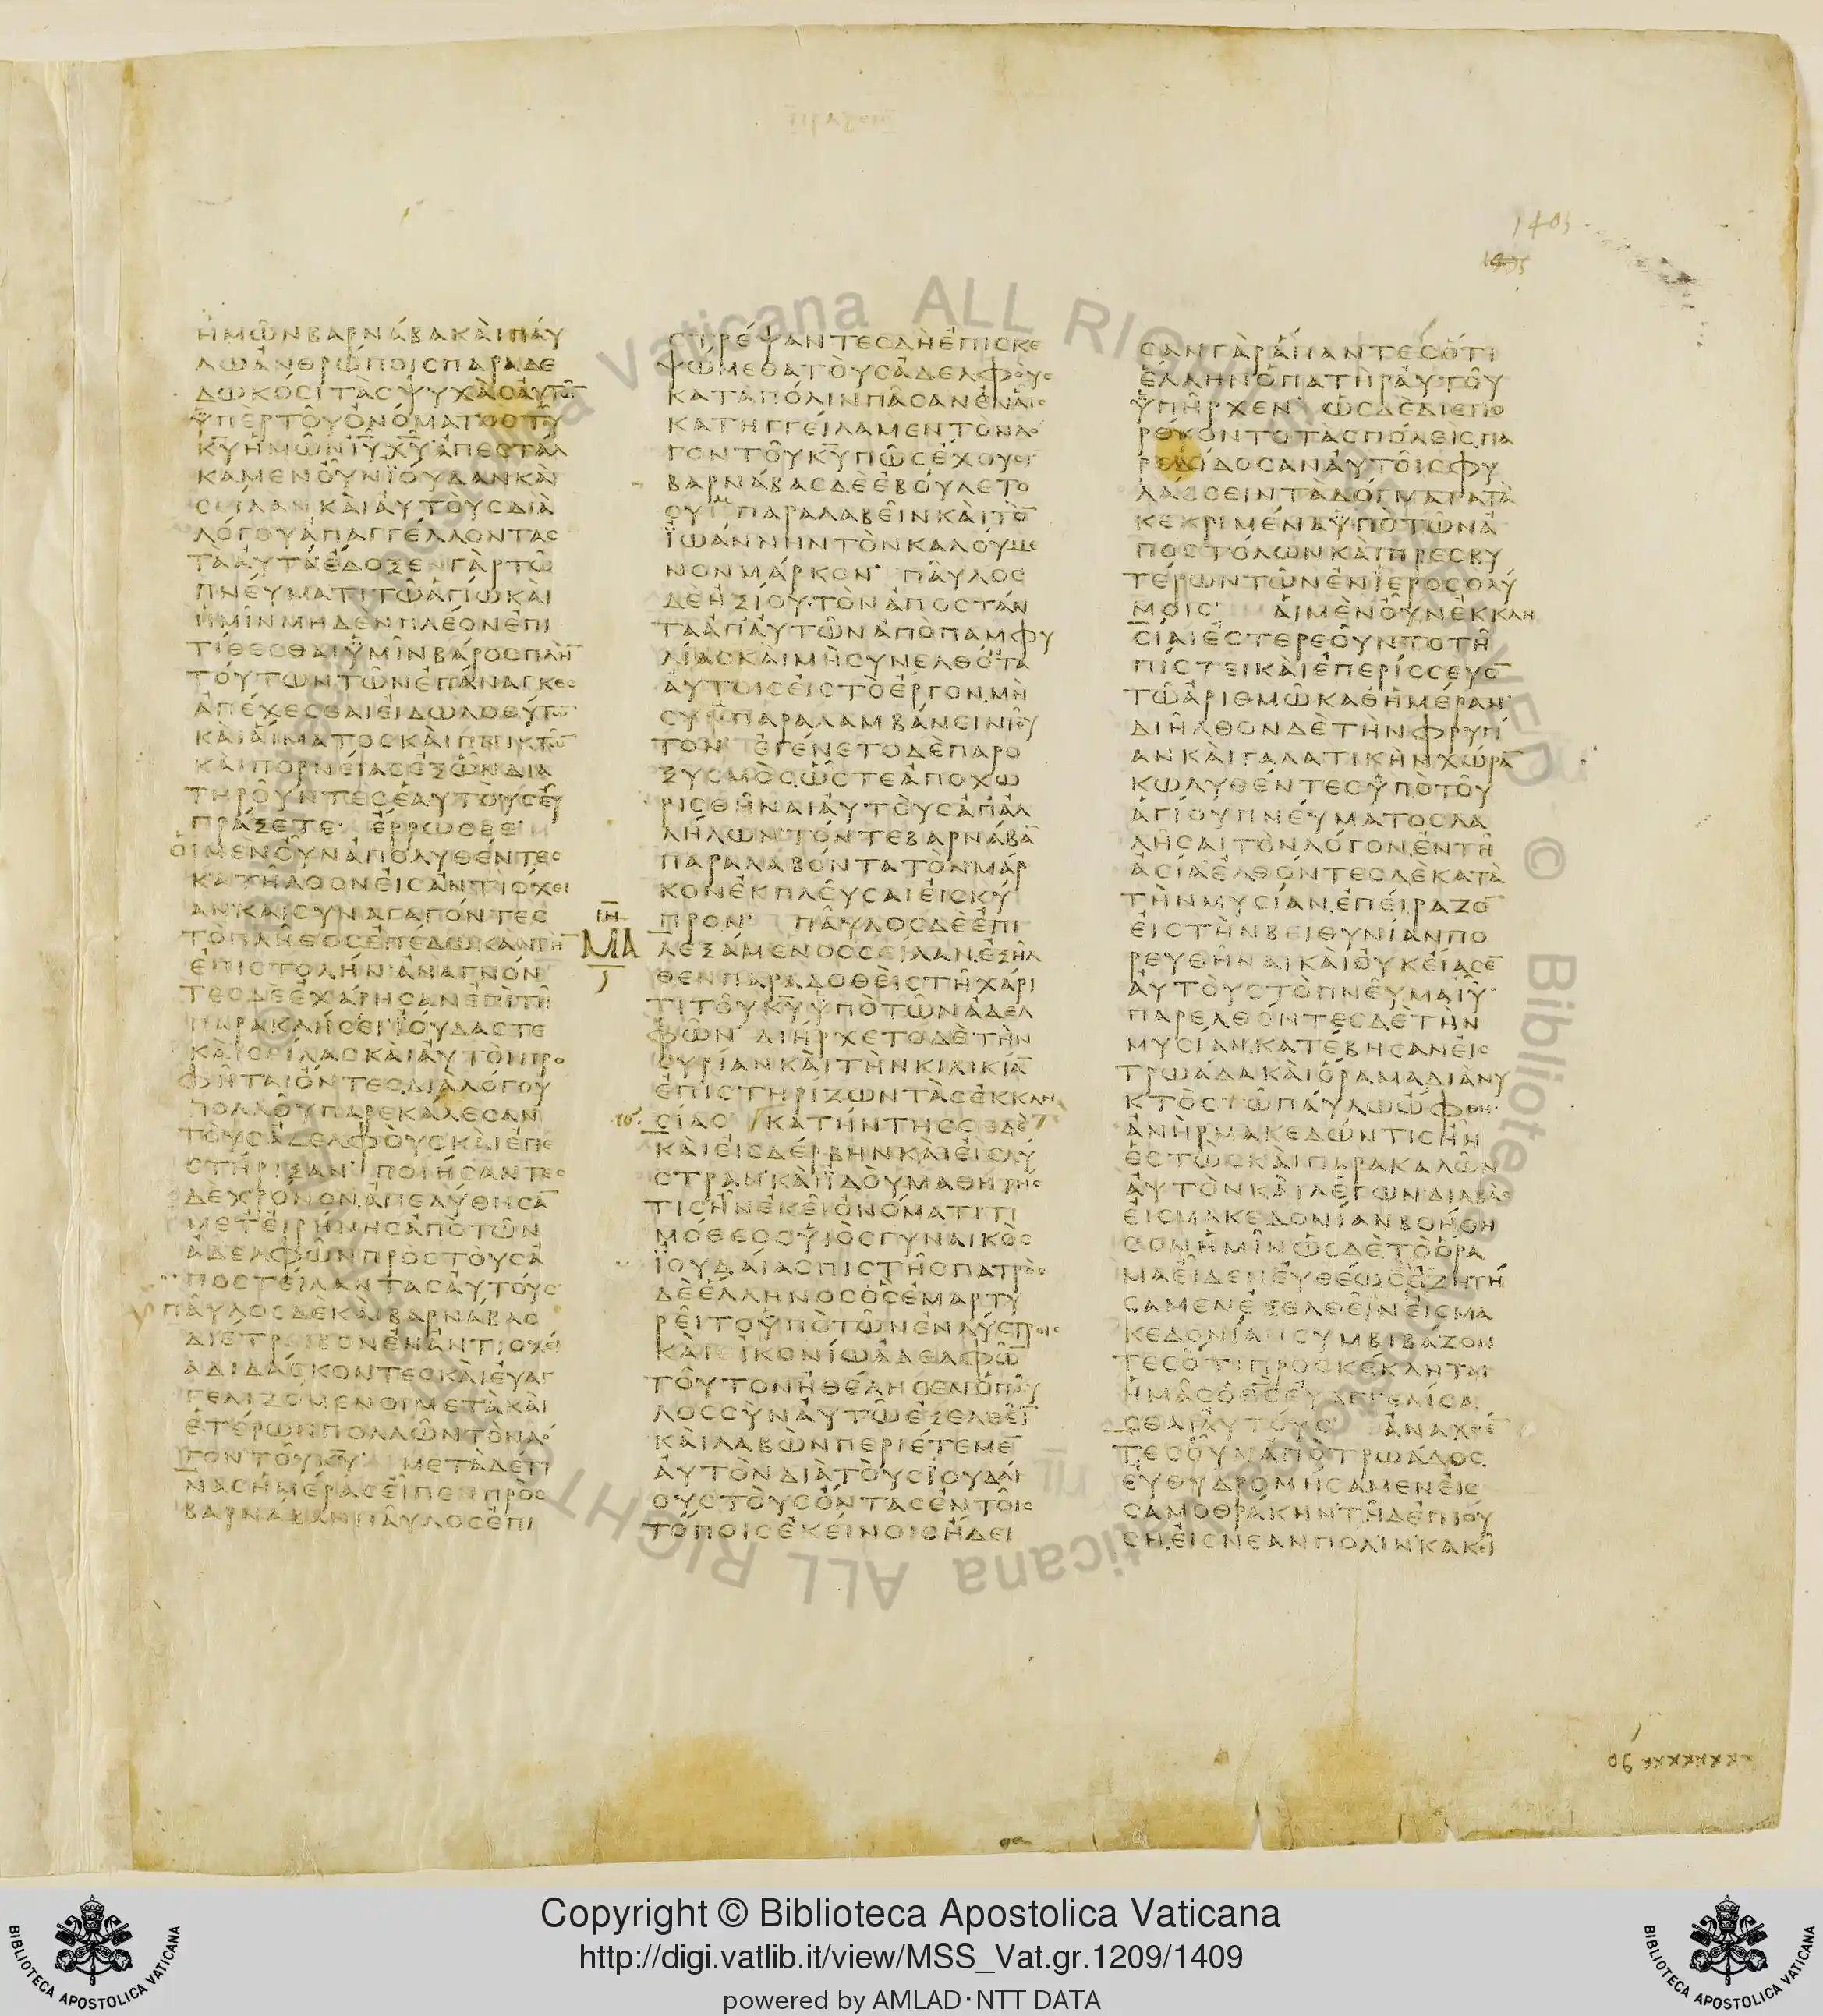 ἡμῶν βαρνάβα καὶ παύ
λω ἀνθρώποις παραδε
δωκόσι τὰς ψυχὰς αὐτῶ̅
ὑπὲρ τοῦ ὀνόματος τοῦ
κ̅υ̅ ἡμῶν ι̅υ̅ χ̅υ̅ ἀπεστάλ
καμεν οὖν ϊούδαν καὶ
σείλαν καὶ αὐτοὺς διὰ
λόγου ἀπαγγέλλοντας
τὰ αὐτά ἔδοξεν γὰρ τῶ
πνεύματι τῶ ἁγίω καὶ
ἡμῖν μηδὲν πλέον ἐπι
τίθεσθαι ὑμῖν βάρος πλὴ̅
τούτων τῶν ἐπάναγκες
ἀπέχεσθαι εἰδωλοθύτω̅
καὶ αἵματος καὶ πνικτῶ̅
καὶ πορνείας ἐξ ὧν δια
τηροῦντες ἑαυτοὺς εὖ
πράξετε ἔρρωσθε
οἱ μὲν οὖν ἀπολυθέντες
κατῆλθον εἰς ἀντιόχει
αν καὶ συναγαγόντες
τὸ πλῆθος ἐπέδωκαν τὴ̅
ἐπιστολήν ἀναγνόν
τες δὲ ἐχάρησαν ἐπὶ τῆ
παρακλήσει ϊούδας τε
καὶ σείλας καὶ αὐτοὶ προ
φῆται ὄντες διὰ λόγου
πολλοῦ παρεκάλεσαν
τοὺς ἀδελφοὺς καὶ ἐπε
στήριξαν ποιήσαντες
δὲ χρόνον ἀπελύθησα̅
μετ εἰρήνης ἀπὸ τῶν
ἀδελφῶν πρὸς τοὺς ἀ
ποστείλαντας αὐτούς
παῦλος δὲ καὶ βαρνάβας
διέτρειβον ἐν ἀντιοχεί
α διδάσκοντες καὶ εὐαγ
γελιζόμενοι μετὰ καὶ
ἑτέρων πολλῶν τὸν λό
γον τοῦ κ̅υ̅ μετὰ δέ τι
νας ἡμέρας εἶπεν πρὸς
βαρνάβαν παῦλος ἐπι
στρέψαντες δὴ ἐπισκε
ψώμεθα τοὺς ἀδελφοὺς
κατὰ πόλιν πᾶσαν ἐν αἷς
κατηγγείλαμεν τὸν λό
γον τοῦ κ̅υ̅ πῶς ἔχουσι
βαρνάβας δὲ ἐβούλετο
συμπαραλαβεῖν καὶ τὸ̅
ϊωάννην τὸν καλούμε
νον μάρκον παῦλος
δὲ ἠξίου τὸν ἀποστάν
τα ἀπ αὐτῶν ἀπὸ παμφυ
λίας καὶ μὴ συνελθόντα
αὐτοῖς εἰς τὸ ἔργον μὴ
συμπαραλαμβάνειν τοῦ
τον ἐγένετο δὲ παρο
ξυσμὸς ὥστε ἀποχω
ρισθῆναι αὐτοὺς ἀπ ἀλ
λήλων τόν τε βαρνάβα̅
παραλαβόντα τὸν μάρ
κον ἐκπλεῦσαι εἰς κύ
ι̅η̅
προν παῦλος δὲ ἐπι
μ̅α̅
λεξάμενος σείλαν ἐξῆλ
θεν παραδοθεὶς τῆ χάρι
τι τοῦ κ̅υ̅ ὑπὸ τῶν ἀδελ
φῶν διήρχετο δὲ τὴν
συρίαν καὶ τὴν κιλικία̅
ἐπιστηρίζων τὰς ἐκκλη
σίας κατήντησε δὲ
καὶ εἰς δέρβην καὶ εἰς λύ
στραν καὶ ϊδοὺ μαθητής
τις ἦν ἐκεῖ ὀνόματι τι
μόθεος υἱὸς γυναικὸς
ϊουδαίας πιστῆς πατρὸς
δὲ ἕλληνος ὃς ἐμαρτυ
ρεῖτο ὑπὸ τῶν ἐν λύστροις
καὶ εἰκονίω ἀδελφῶ̅
τοῦτον ἠθέλησεν ὁ παῦ
λος σὺν αὐτῶ ἐξελθεῖ̅
καὶ λαβὼν περιέτεμε̅
αὐτὸν διὰ τοὺς ϊουδαί
ους τοὺς ὄντας ἐν τοῖς
τόποις ἐκείνοις ἤδει
σαν γὰρ ἅπαντες ὅτι
ἕλλην ὁ πατὴρ αὐτοῦ
ὑπῆρχεν ὡς δὲ διεπο
ρεύοντο τὰς πόλεις πα
ρεδίδοσαν αὐτοῖς φυ
λάσσειν τὰ δόγματα τὰ
κεκριμένα ὑπὸ τῶν ἀ
ποστόλων καὶ πρεσβυ
τέρων τῶν ἐν ϊεροσολύ
μοις αἱ μὲν οὖν ἐκκλη
σίαι ἐστερεοῦντο τῆ
πίστει καὶ ἐπερίσσευο̅
τῶ ἀριθμῶ καθ ἡμέραν
διῆλθον δὲ τὴν φρυγί
αν καὶ γαλατικὴν χώρα̅
κωλυθέντες ὑπὸ τοῦ
ἁγίου πνεύματος λα
λῆσαι τὸν λόγον ἐν τῆ
ἀσία ἐλθόντες δὲ κατὰ
τὴν μυσίαν ἐπείραζο̅
εἰς τὴν βειθυνίαν πο
ρευθῆναι καὶ οὐκ εἴασε̅
αὐτοὺς τὸ πνεῦμα ι̅υ̅
παρελθόντες δὲ τὴν
μυσίαν κατέβησαν εἰς
τρωάδα καὶ ὅραμα διὰ νυ
κτὸς τῶ παύλω ὤφθη
ἀνὴρ μακεδών τις ἦν
ἑστὼς καὶ παρακαλῶν
αὐτὸν καὶ λέγων διαβὰς
εἰς μακεδονίαν βοήθη
σον ἡμῖν ὡς δὲ τὸ ὅρα
μα εἶδεν εὐθέως ἐζητή
σαμεν ἐξελθεῖν εἰς μα
κεδονίαν συμβιβάζον
τες ὅτι προσκέκληται
ἡμᾶς ὁ θ̅ς̅ εὐαγγελίσα
σθαι αὐτούς ἀναχθέ̅
τες οὖν ἀπὸ τρωάδος
εὐθυδρομήσαμεν εἰς
σαμοθράκην τῆ δὲ ἐπιού
ση εἰς νέαν πόλιν κἀκεῖ
Copyright © Biblioteca Apostolica Vaticana
http://digi.vatlib.it/view/MSS_Vat.gr.1209/1409
powered by AMLAD·NTT DATA
BIBLIOTECA APOSTOLICA VATICANA
BIBLIOTECA APOSTOLICA VATICANA